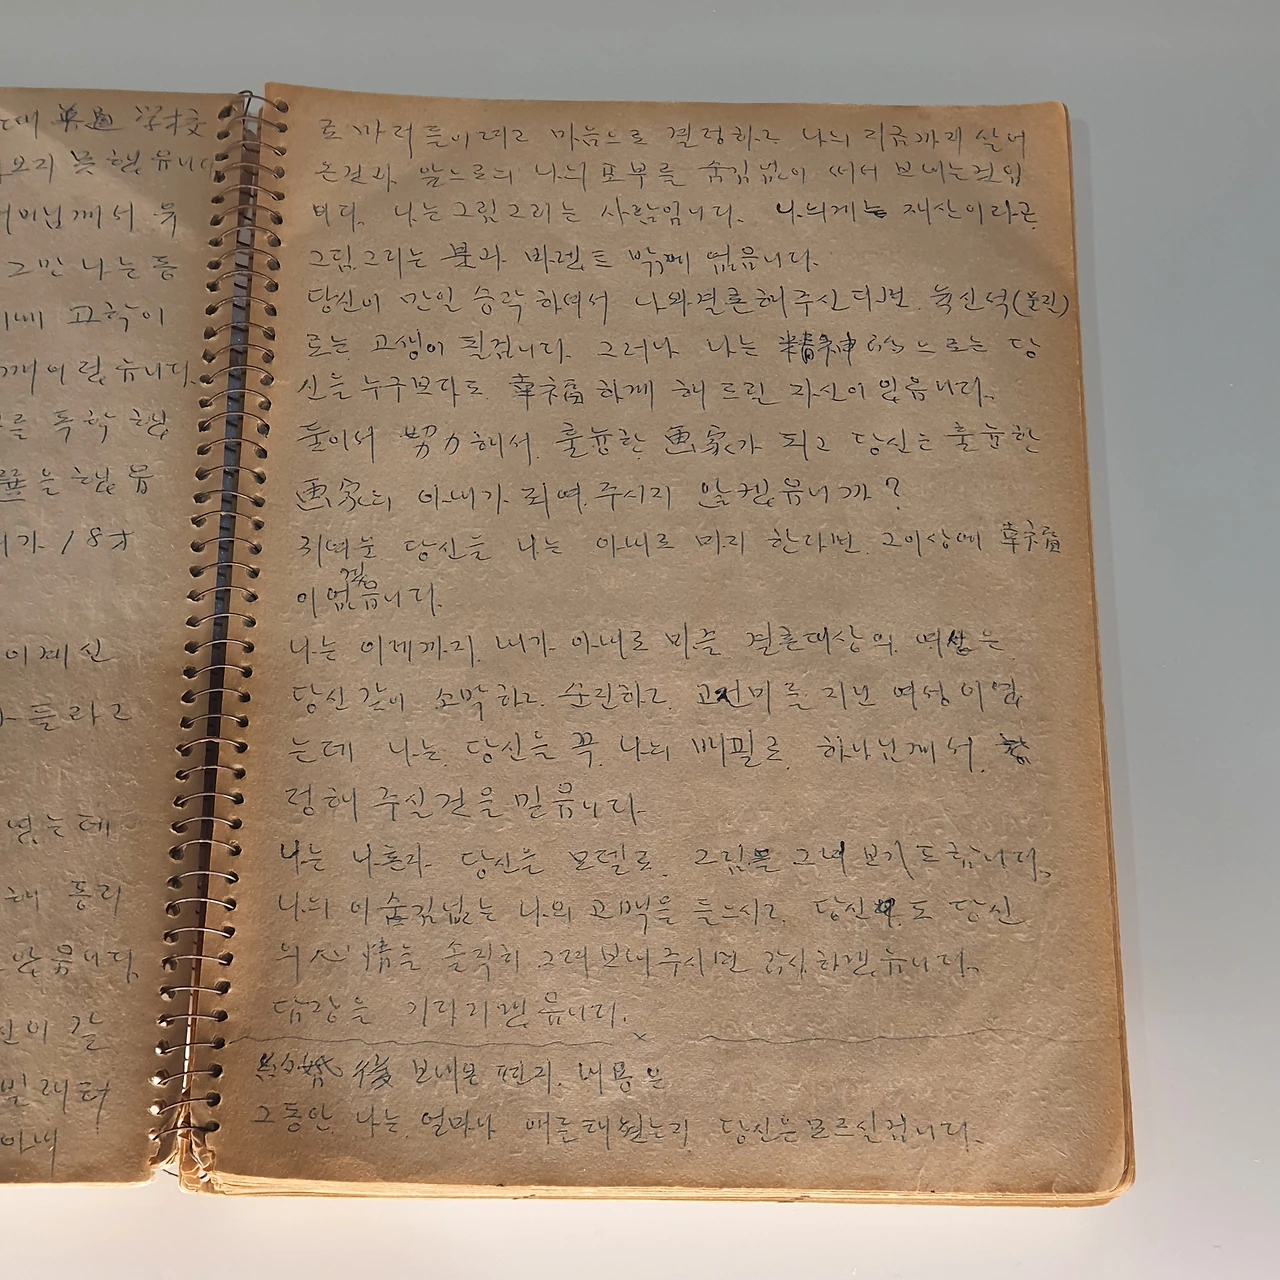 대 普通 学校
오지 못했읍니다
어머님께서 무
그만 나는 등
교학이
를 독학 했
을 했읍
가 18才
이계신
들라고
는데
해 동리
읍니다.
아내
로 까러 들이려고 마음으로 결정하고 나의 지금까지 살어
온걸과 앞으로의 나의 포부를 숨김없이 써서 보내는건입
니다. 나는 그림 그리는 사람입니다. 나의게는 재산이라곤
그림 그리는 붓과 바렛트 밖께 없읍니다.
당신이 만일 승락하여서 나와결혼해주신다면. 물신적(물질)
로는 고생이 될겁니다. 그러나 나는 精神的으로는 당
신을 누구보다도 幸福하게 해 드린 자신이 있읍니다.
둘이서 努力해서. 훌늉한 画家가 되고 당신은 훌늉한
画家의 아내가 되여. 주시지 않켔읍니까?
귀여운 당신을 나는 아내로 마지 한다면. 그이상에 幸福
이없겠읍니다.
나는 이제까지. 내가 아내로 마즐 결혼대상의 여성은
당신 같이 소박하고. 순진하고. 고전미를 지닌 여성이였
는데 나는. 당신을 꼭. 나의 배필로. 하나님께서.
정해 주실건을 믿읍니다.
나는 나혼자 당신을 모델로. 그림을 그녀 보기도 합니다.
나의 이 숨김없는 나의 고백을 들으시고. 당신도 당신
의 心情을 솔직히 그려보내주시면 감사하겠읍니다.
답장을 기다리겠읍니다.
結婚 後 보내온 편지. 내용은
그동안. 나는. 얼마나 애를태웠는지 당신은모르실겁니다.